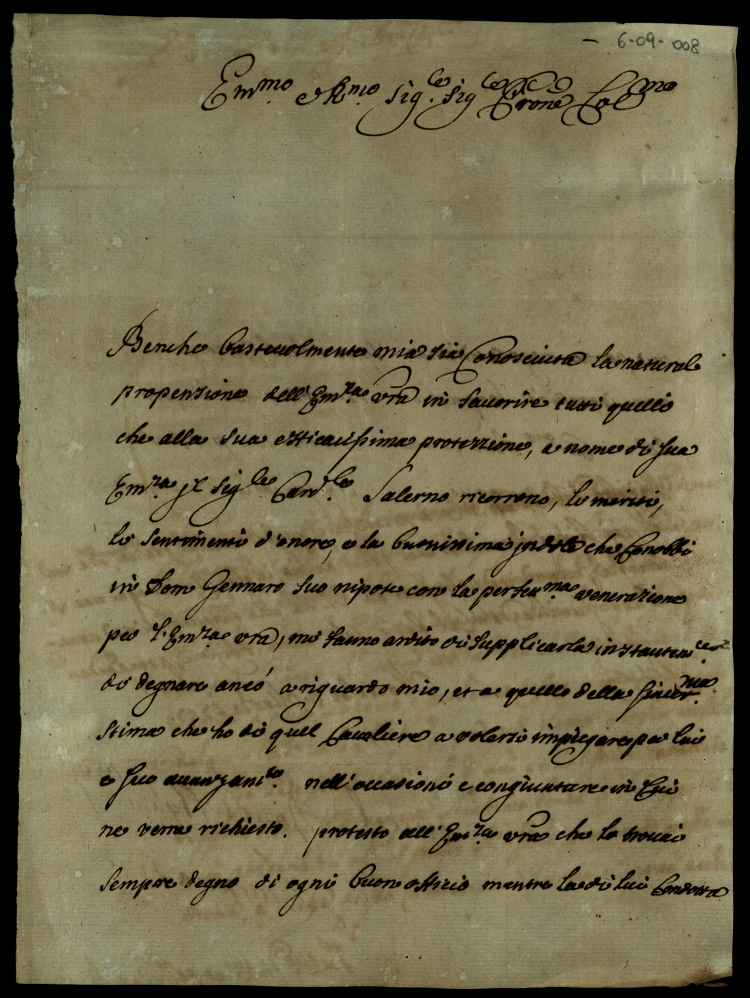 6-09-008
Em.mo e R.mo Sig.re Sig.re e Prone Col.mo
Benche bastevolmente mi sia Conosciuta la natural
propenzione dell'Em.za vra in favorire tutti quelli
che alla sua efficacissima protezzione, a nome di sua
Em.za jl Sig.le Card.le Salerno ricorrono, lo merito,
li sentimenti d'onore, e la buonissima jndole che Conobbi
in Dom Gennaro suo nipote con la perfett.ma venerazione
per l'Em.za vra, mi fanno ardito di supplicarla
di degnare ancò a riguardo mio, et a quello della sincer.ma
stima che ho di quel Cavaliere a volersi impiegare per lui
e suo avanzam.to nell'occasioni e congiunture in Cui
ne verra richiesto. protesto all'Em.za vra che lo trovai
sempre degno di ogni buon offizio mentre la di lui Condotta